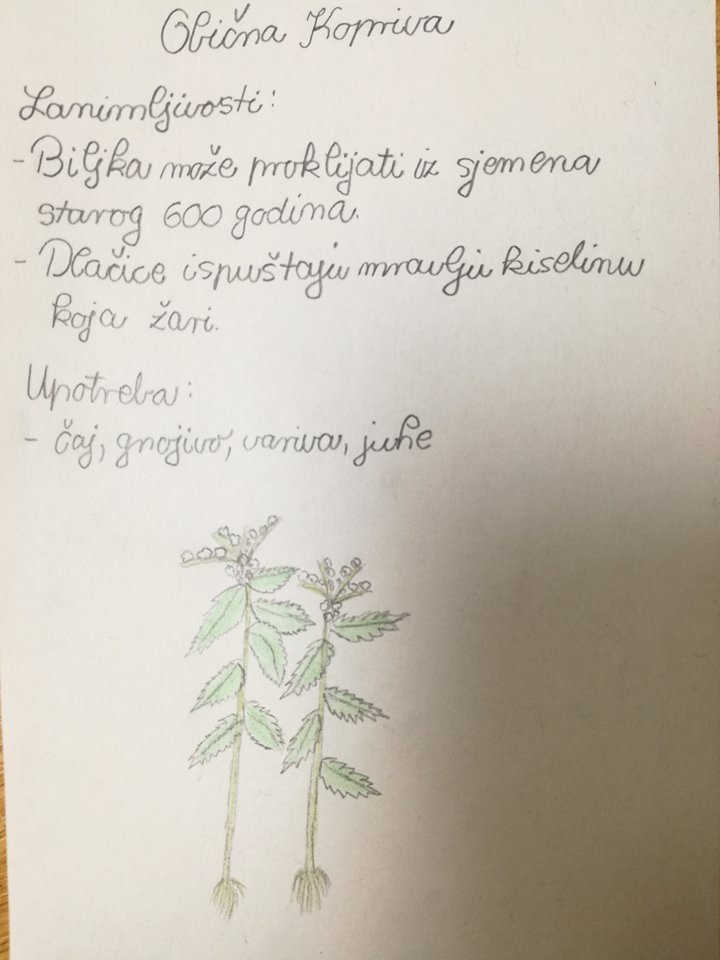 Obična Kopriva
Zanimljivosti:
- Biljka može proklijati iz sjemena
starog 600 godina.
- Dlačice ispuštaju mravlju kiselinu
koja žari.
Upotreba:
- čaj, gnojivo, variva, juhe